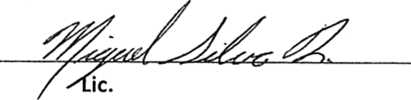 Miguel Silva R.
Lic.